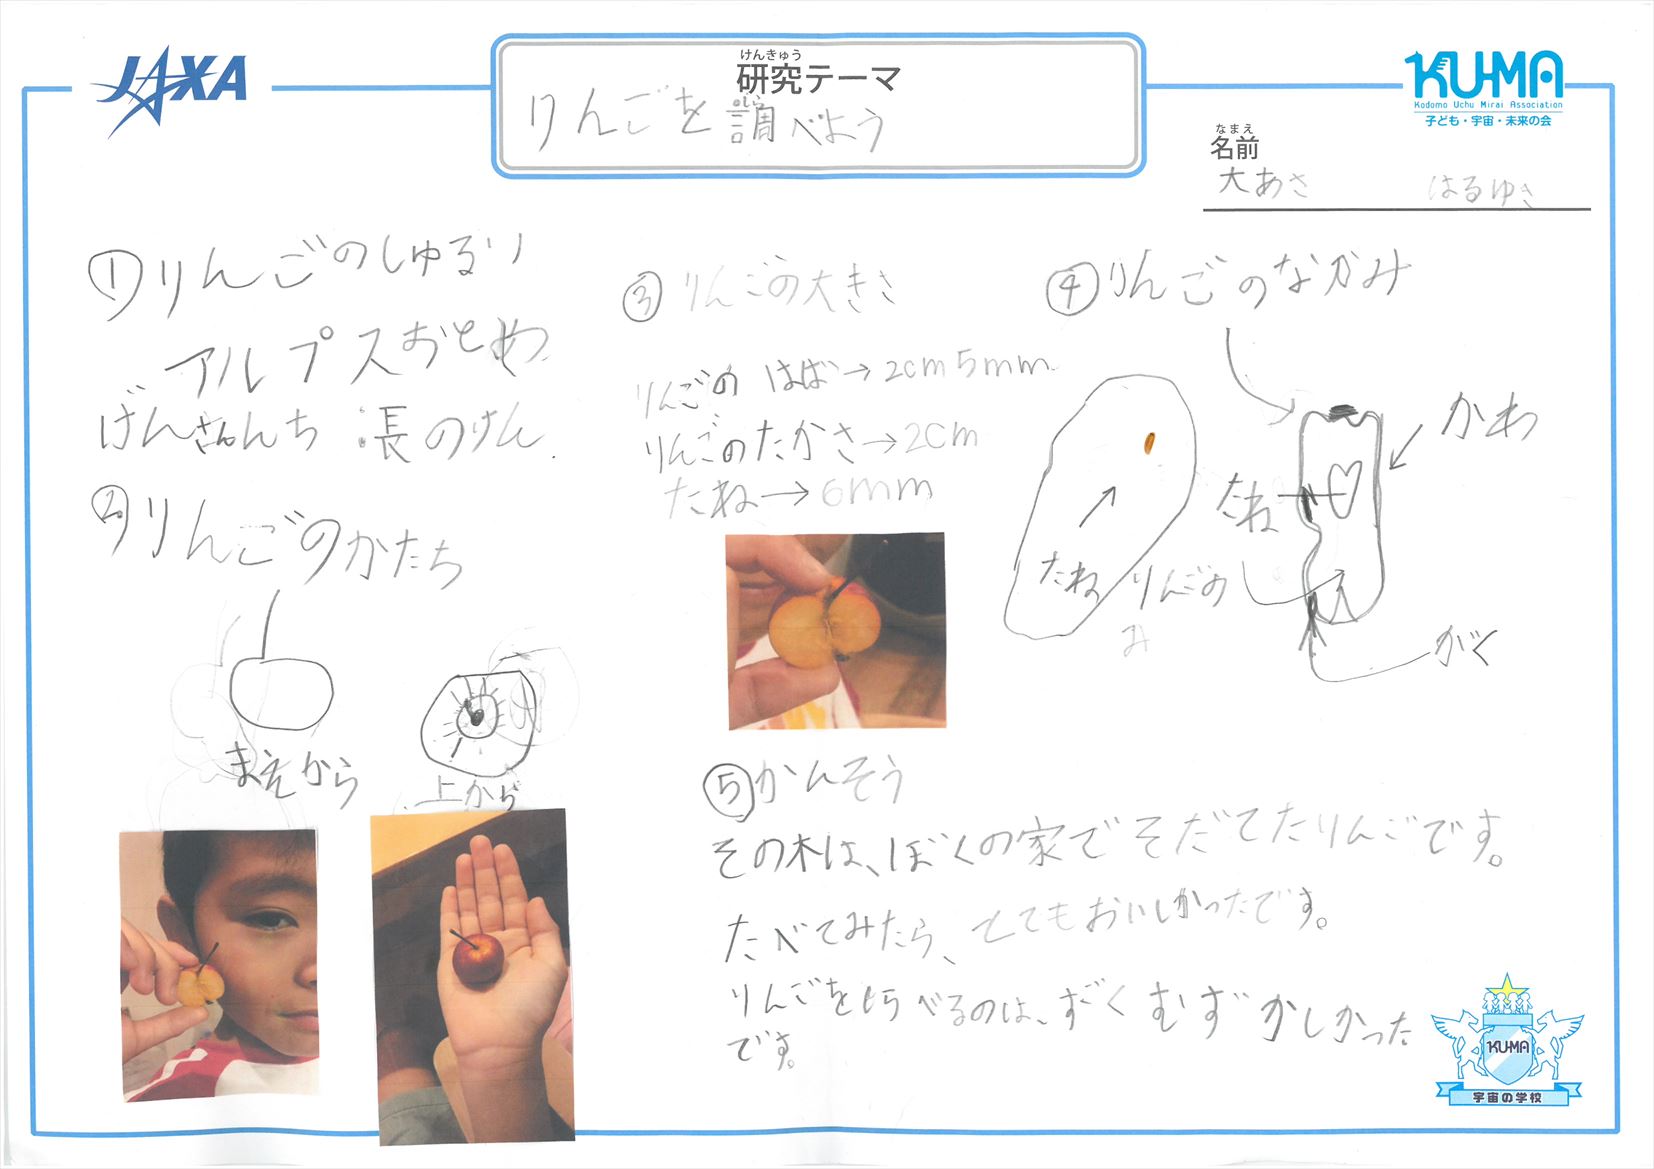 JAXA
けんきゅう
研究テーマ
りんごを調べよう
KU-MA
Kodomo Uchu Mirai Association
子ども・宇宙・未来の会
なまえ
名前
大あさ はるゆき
①りんごのしゅるり
アルプスおとめ
げんさんち 長のけん
②りんごのかたち
まえから
上から
③りんごの大きさ
りんごの はば→2cm5mm
りんごのたかさ→2cm
たね→6mm
④りんごのなかみ
かわ
たね
たね
りんごの
み
がく
⑤かんそう
その木は、ぼくの家でそだてたりんごです。
たべてみたら、とてもおいしかったです。
りんごをしらべるのは、すごくむずかしかった
です。
KU-MA
宇宙の学校